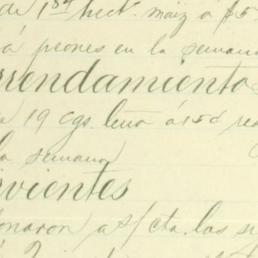 de 1 hect. maiz a $5
á peones en la semana
rrendamientos
19 cgs. leña á 150
la semana
vientes
onaron a s/cta. las